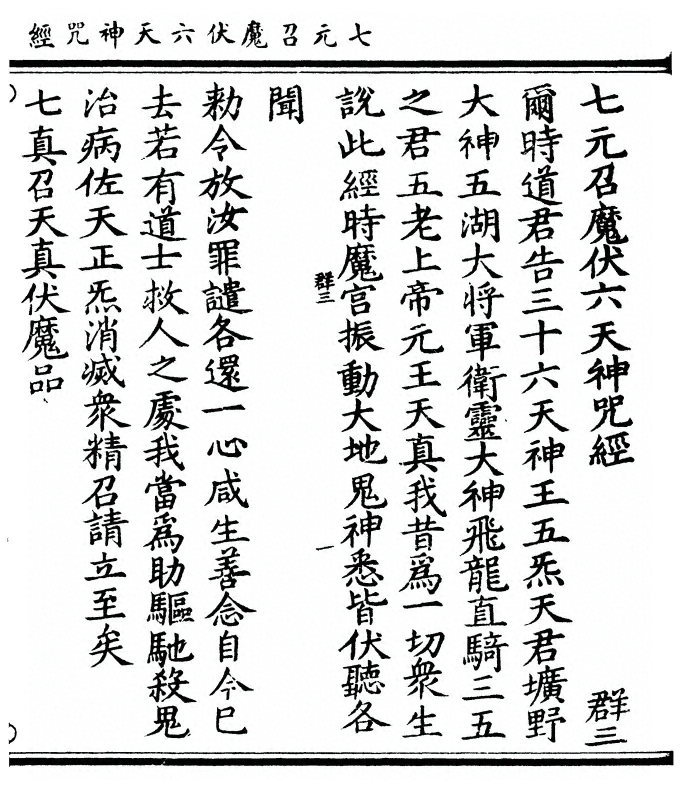 七元召魔伏六天神咒經
七元召魔伏六天神咒經
群三
爾時道君告三十六天神王五炁天君壙野
大神五湖大將軍衛靈大神飛龍直騎三五
之君五老上帝元王天真我昔爲一切衆生
說此經時魔宮振動大地鬼神悉皆伏聽各
群三
一
聞
勑令放汝罪譴各還一心咸生善念自今已
去若有道士救人之處我當爲助驅馳殺鬼
治病佐天正炁消滅衆精召請立至矣
七真召天真伏魔品